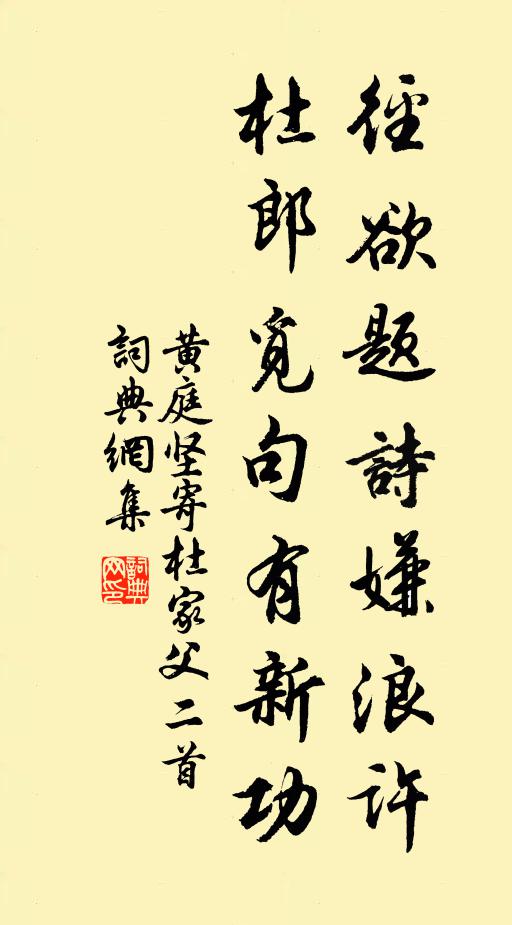 徑欲題詩嫌浪許
杜郎覓句有新功
黄庭坚寄杜家父二首
詞典網集
詞典网印